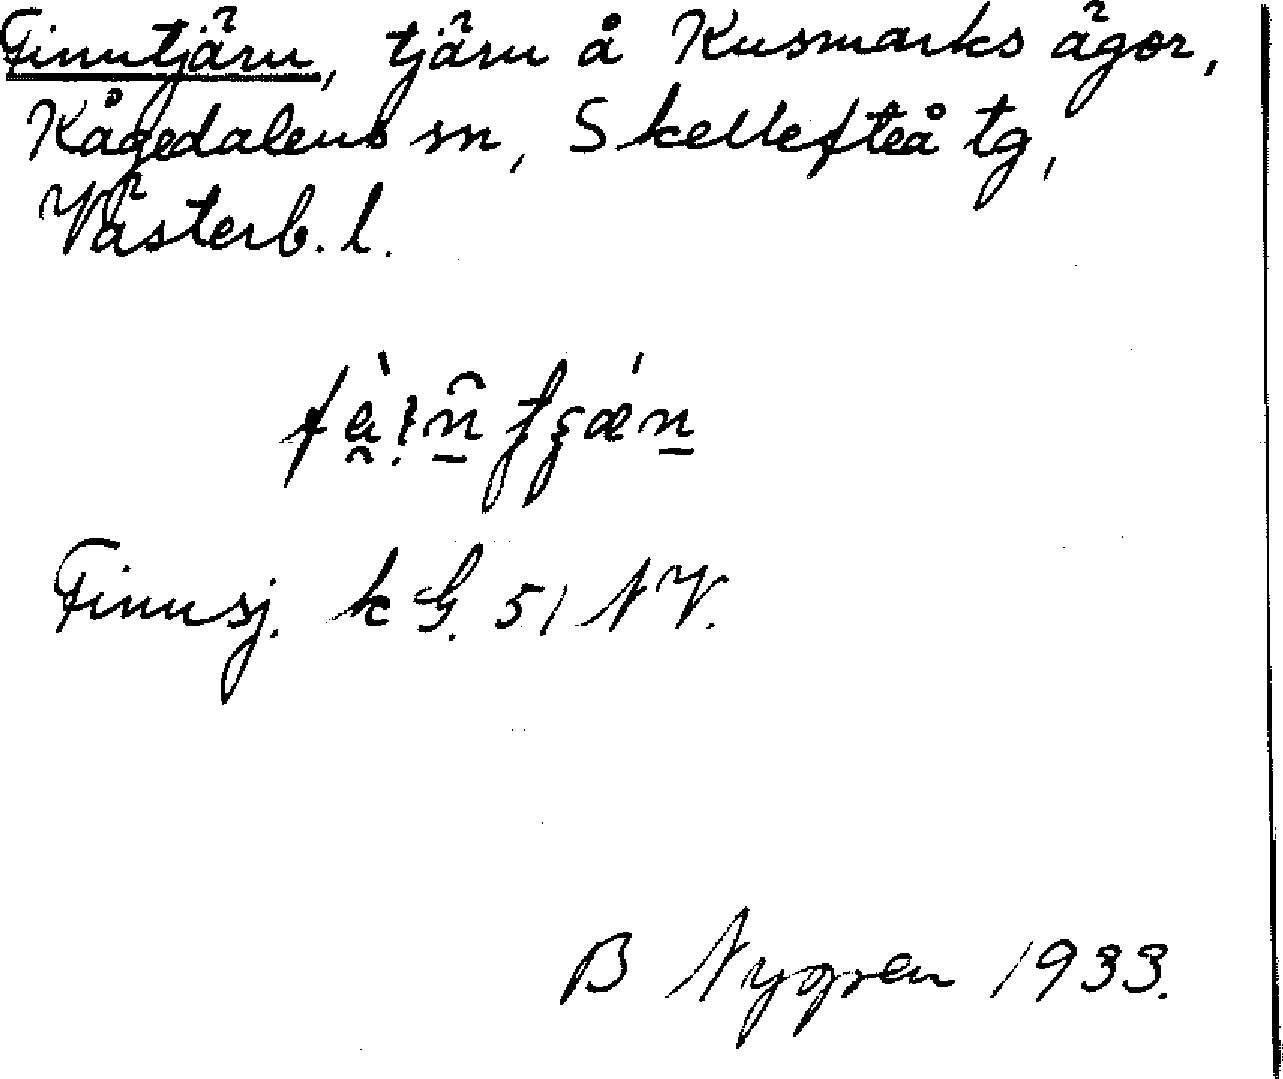 Finntjärn, tjärn å Kusmarks ägor,
Kågedalens sn, Skellefteå tg,
Västerb. l.
Finnsj. k G. 51 NV.
B Nygren 1933.